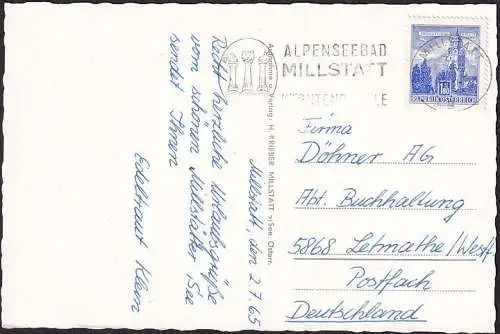 Millstatt, den 2.7.65
Recht herzliche Urlaubsgrüße
vom schönen Millstätter See
sendet Ihnen
Edeltraut Klein
Aufnahme u. Verlag: H. KRIEBER MILLSTATT a/See, Österr.
ALPENSEEBAD
MILLSTATT
REPUBLIK ÖSTERREICH
Firma
Döhner AG
Abt. Buchhaltung
5868 Letmathe/Westf.
Postfach
Deutschland